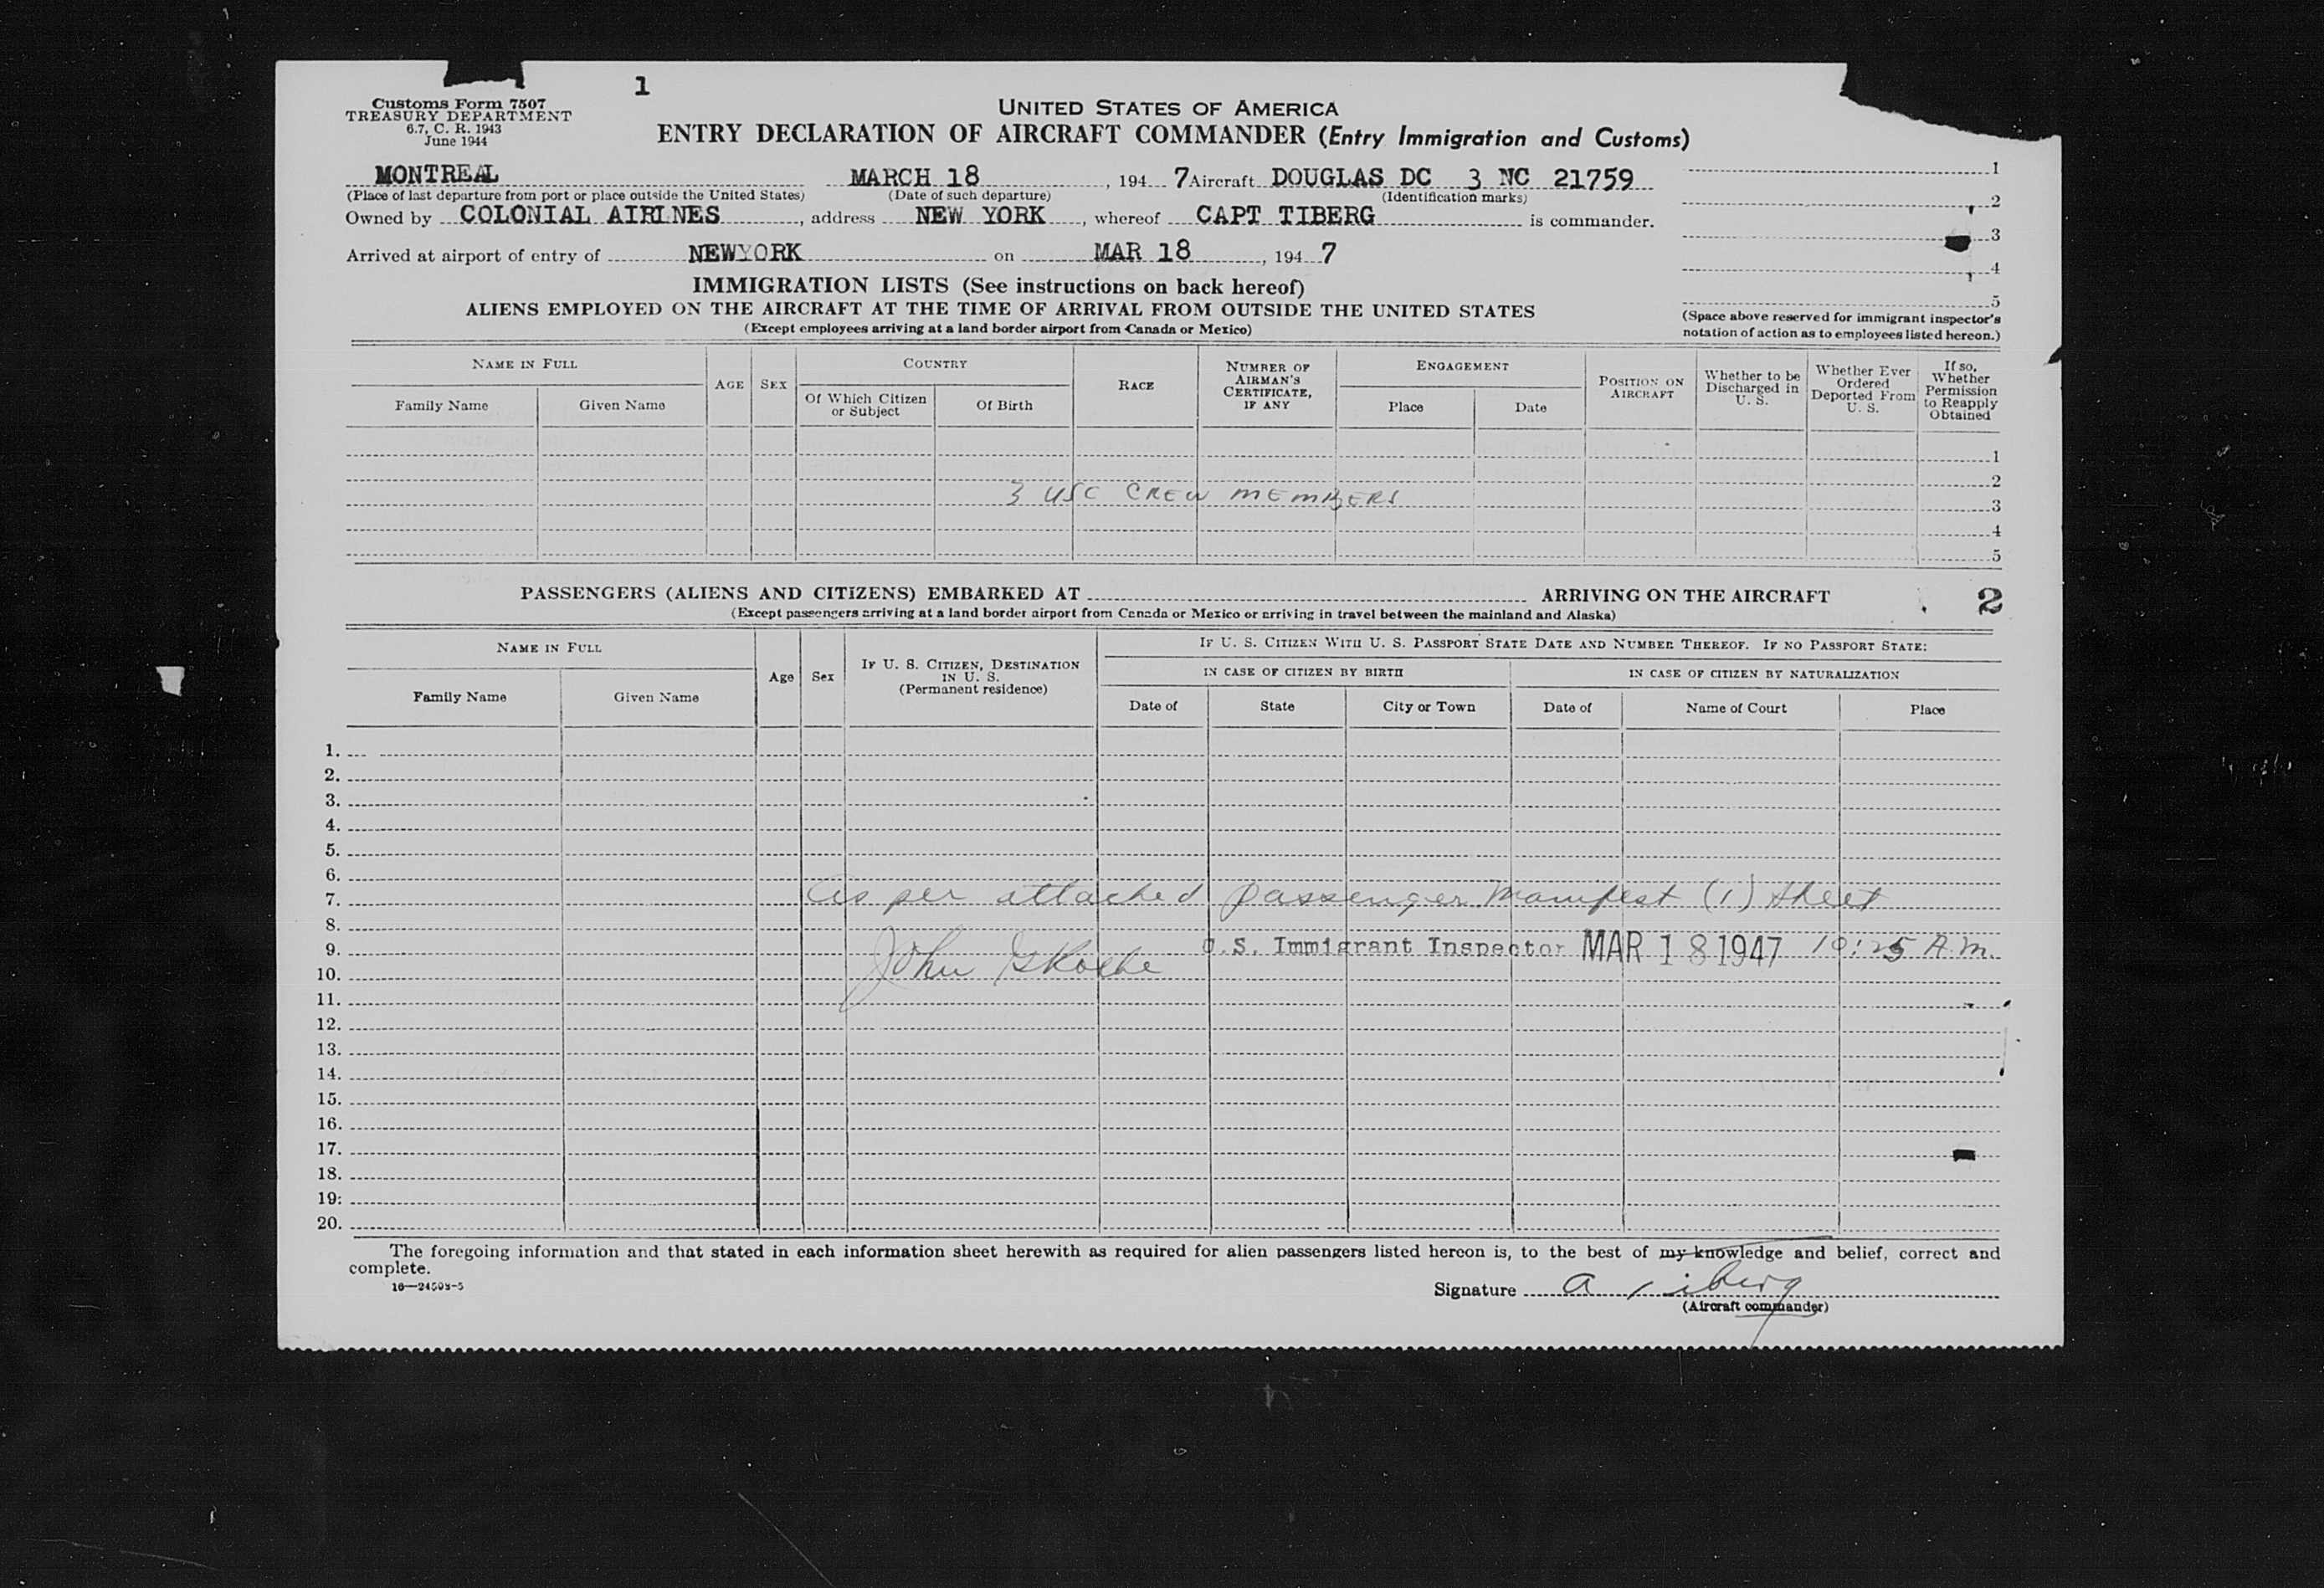 1
Customs Form 7507
TREASURY DEPARTMENT
6.7, C. R. 1943
June 1944
UNITED STATES OF AMERICA
ENTRY DECLARATION OF AIRCRAFT COMMANDER (Entry Immigration and Customs)
MONTREAL MARCH 18, 1947 Aircraft DOUGLAS DC 3 NC 21759
(Place of last departure from port or place outside the United States) (Date of such departure) (Identification marks)
Owned by COLONIAL AIRLNES, address NEW YORK, whereof CAPT TIBERG is commander.
Arrived at airport of entry of NEWYORK on MAR 18, 1947
1
2
3
4
5
(Space above reserved for immigrant inspector's
notation of action as to employees listed hereon.)
IMMIGRATION LISTS (See instructions on back hereof)
ALIENS EMPLOYED ON THE AIRCRAFT AT THE TIME OF ARRIVAL FROM OUTSIDE THE UNITED STATES
(Except employees arriving at a land border airport from Canada or Mexico)
NAME IN FULL
Family Name
Given Name
AGE
SEX
COUNTRY
Of Which Citizen or Subject
Of Birth
RACE
NUMBER OF AIRMAN'S CERTIFICATE, IF ANY
ENGAGEMENT
Place
Date
POSITION ON AIRCRAFT
Whether to be Discharged in U. S.
Whether Ever Ordered Deported From U. S.
If so, Whether Permission to Reapply Obtained
1
2
3 USC CREW MEMBERS
3
4
5
PASSENGERS (ALIENS AND CITIZENS) EMBARKED AT ARRIVING ON THE AIRCRAFT 2
(Except passengers arriving at a land border airport from Canada or Mexico or arriving in travel between the mainland and Alaska)
NAME IN FULL
Family Name
Given Name
Age
Sex
IF U. S. CITIZEN, DESTINATION IN U. S.
(Permanent residence)
IF U. S. CITIZEN WITH U. S. PASSPORT STATE DATE AND NUMBER THEREOF. IF NO PASSPORT STATE:
IN CASE OF CITIZEN BY BIRTH
Date of
State
City or Town
IN CASE OF CITIZEN BY NATURALIZATION
Date of
Name of Court
Place
1.
2.
3.
4.
5.
6.
7. As per attached passenger manifest (1) sheet
8.
9. U.S. Immigrant Inspector MAR 18 1947 10:25 A.M.
10. John
11.
12.
13.
14.
15.
16.
17.
18.
19.
20.
The foregoing information and that stated in each information sheet herewith as required for alien passengers listed hereon is, to the best of my knowledge and belief, correct and
complete.
16—24503-5
Signature A Tiberg
(Aircraft commander)